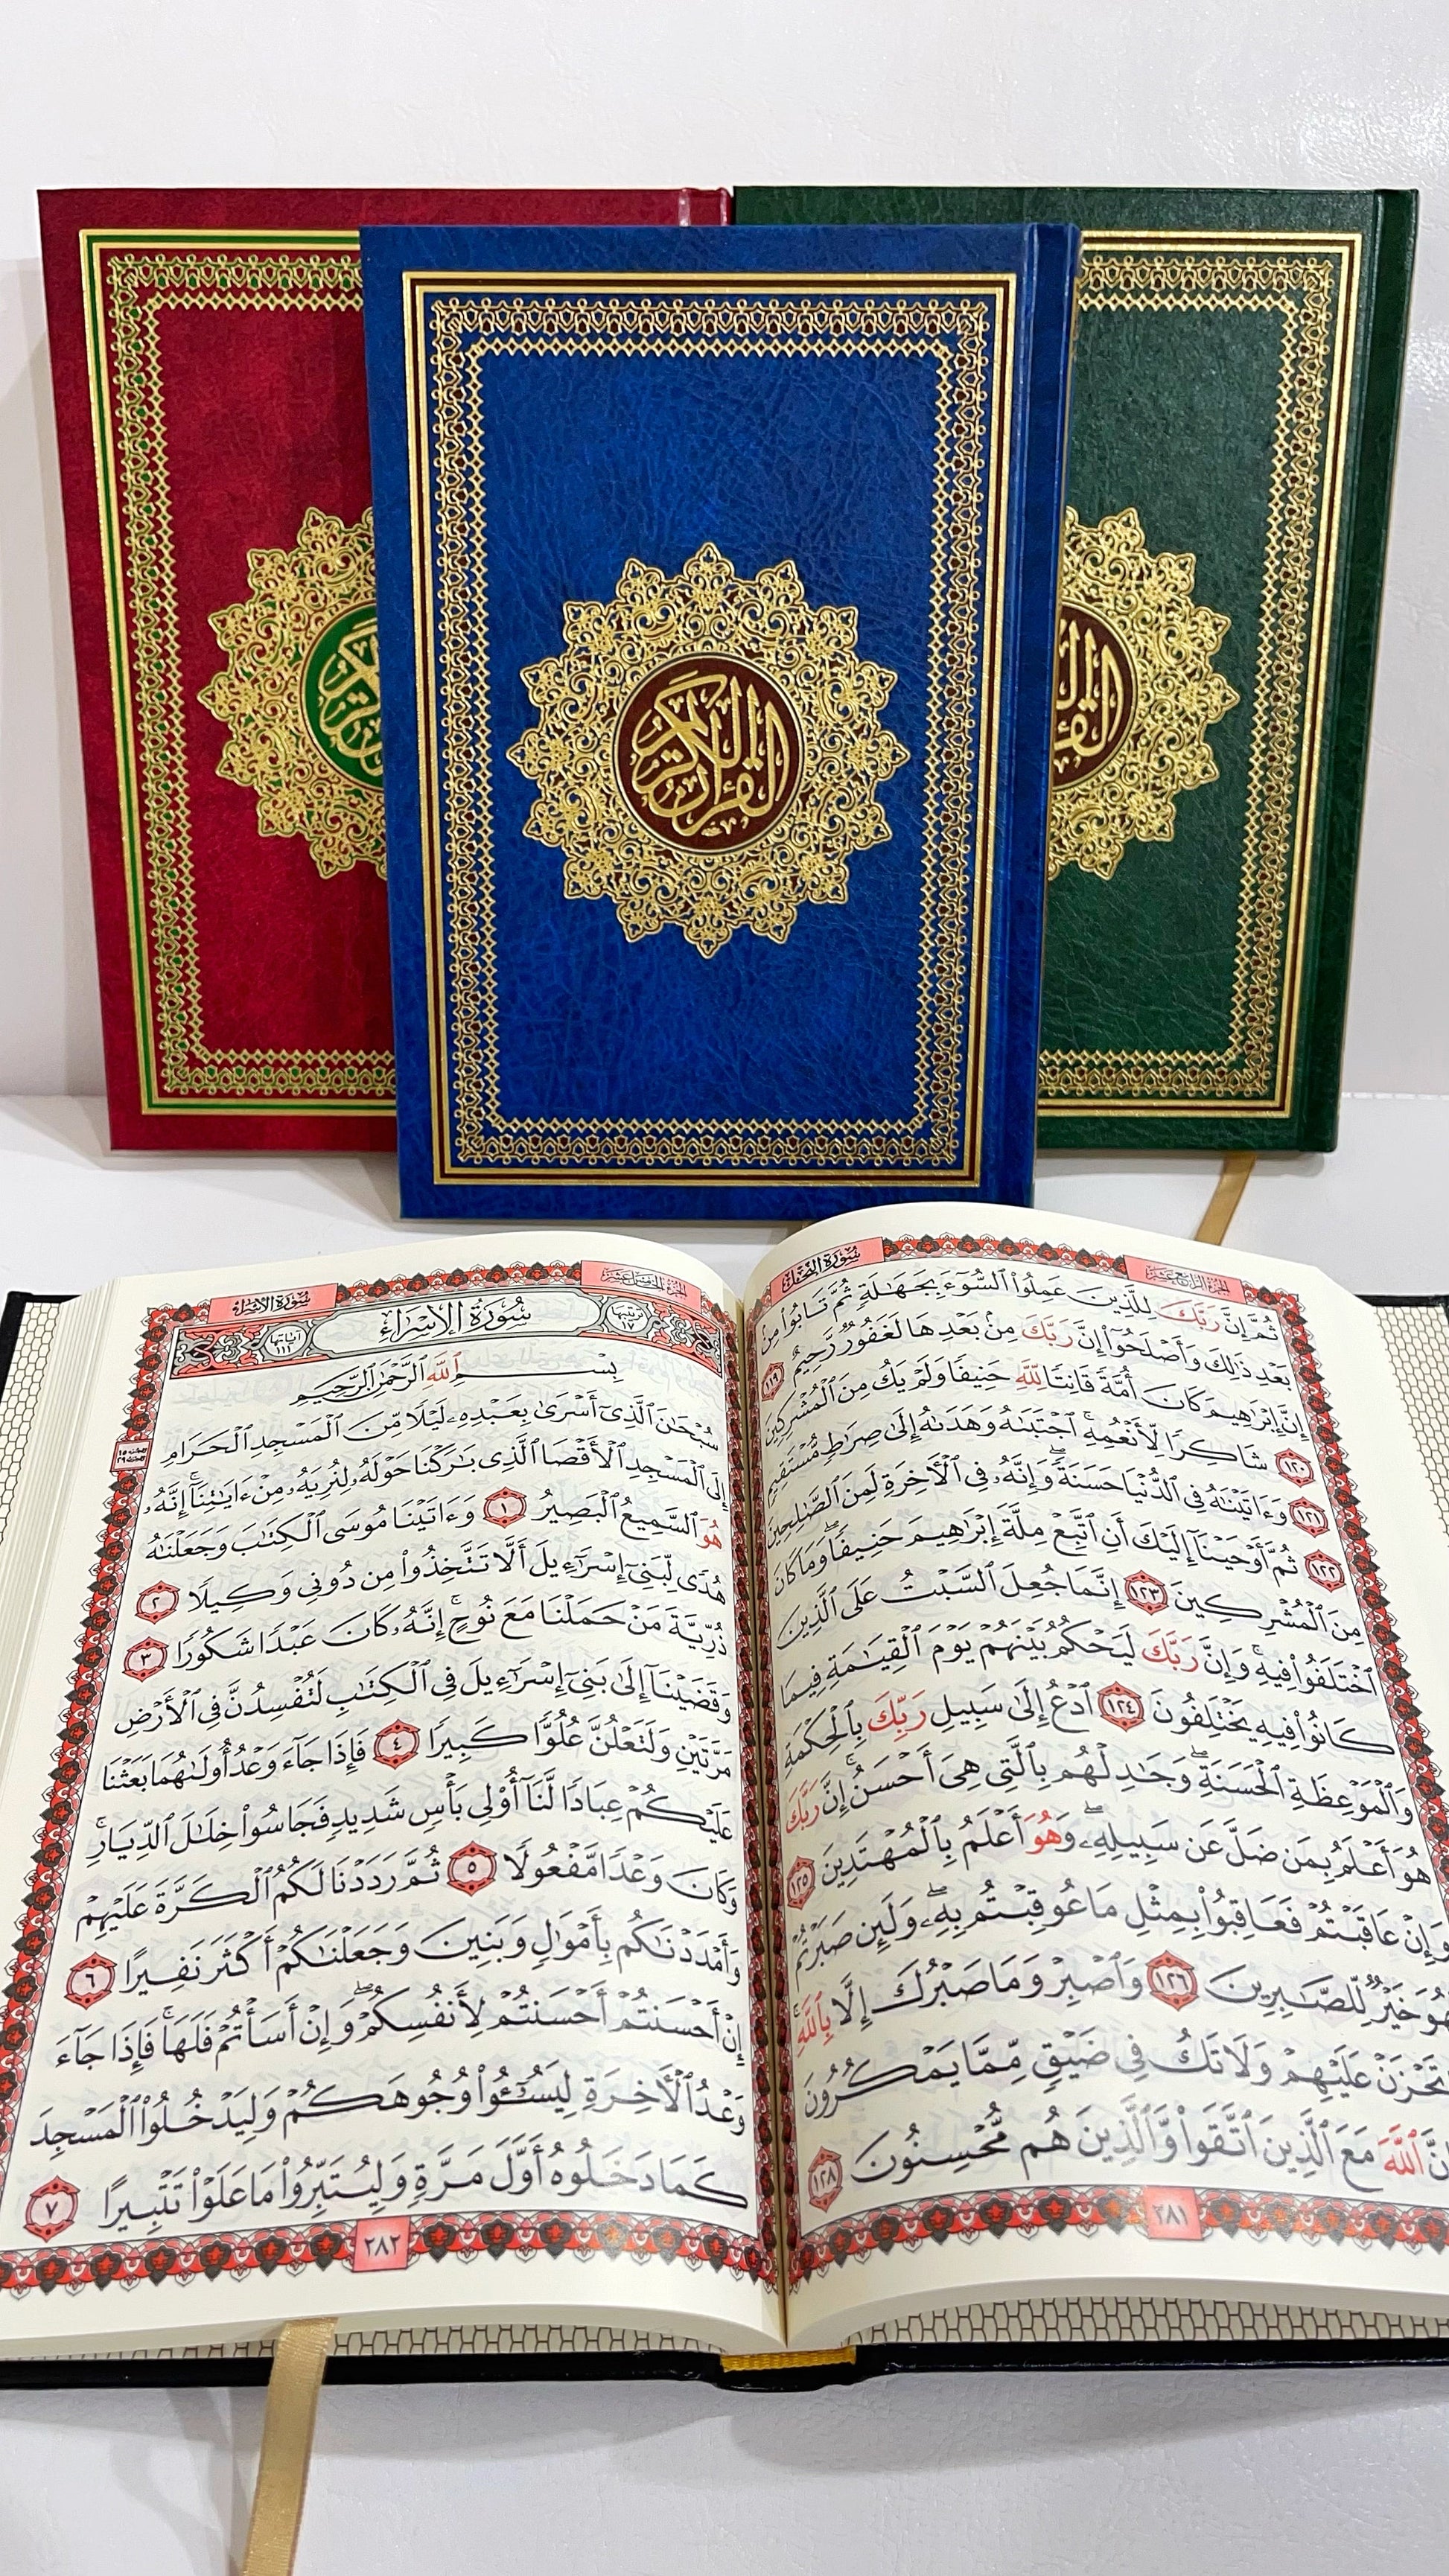 القرآن الكريم
سورة النحل
الجزء الرابع عشر
ثُمَّ إِنَّ رَبَّكَ لِلَّذِينَ عَمِلُوا۟ ٱلسُّوٓءَ بِجَهَـٰلَةٍ ثُمَّ تَابُوا۟ مِنۢ
بَعْدِ ذَٰلِكَ وَأَصْلَحُوٓا۟ إِنَّ رَبَّكَ مِنۢ بَعْدِهَا لَغَفُورٌ رَّحِيمٌ ١١٩
إِنَّ إِبْرَٰهِيمَ كَانَ أُمَّةً قَانِتًا لِّلَّهِ حَنِيفًا وَلَمْ يَكُ مِنَ ٱلْمُشْرِكِينَ
١٢٠ شَاكِرًا لِّأَنْعُمِهِ ۚ ٱجْتَبَىٰهُ وَهَدَىٰهُ إِلَىٰ صِرَٰطٍ مُّسْتَقِيمٍ
١٢١ وَءَاتَيْنَـٰهُ فِى ٱلدُّنْيَا حَسَنَةً ۖ وَإِنَّهُۥ فِى ٱلْـَٔاخِرَةِ لَمِنَ ٱلصَّـٰلِحِينَ
١٢٢ ثُمَّ أَوْحَيْنَآ إِلَيْكَ أَنِ ٱتَّبِعْ مِلَّةَ إِبْرَٰهِيمَ حَنِيفًا ۖ وَمَا كَانَ
مِنَ ٱلْمُشْرِكِينَ ١٢٣ إِنَّمَا جُعِلَ ٱلسَّبْتُ عَلَى ٱلَّذِينَ
ٱخْتَلَفُوا۟ فِيهِ ۚ وَإِنَّ رَبَّكَ لَيَحْكُمُ بَيْنَهُمْ يَوْمَ ٱلْقِيَـٰمَةِ فِيمَا
كَانُوا۟ فِيهِ يَخْتَلِفُونَ ١٢٤ ٱدْعُ إِلَىٰ سَبِيلِ رَبِّكَ بِٱلْحِكْمَةِ
وَٱلْمَوْعِظَةِ ٱلْحَسَنَةِ ۖ وَجَـٰدِلْهُم بِٱلَّتِى هِىَ أَحْسَنُ ۚ إِنَّ رَبَّكَ
هُوَ أَعْلَمُ بِمَن ضَلَّ عَن سَبِيلِهِۦ ۖ وَهُوَ أَعْلَمُ بِٱلْمُهْتَدِينَ ١٢٥
وَإِنْ عَاقَبْتُمْ فَعَاقِبُوا۟ بِمِثْلِ مَا عُوقِبْتُم بِهِۦ ۖ وَلَئِن صَبَرْتُمْ
لَهُوَ خَيْرٌ لِّلصَّـٰبِرِينَ ١٢٦ وَٱصْبِرْ وَمَا صَبْرُكَ إِلَّا بِٱللَّهِ ۚ
تَحْزَنْ عَلَيْهِمْ وَلَا تَكُ فِى ضَيْقٍ مِّمَّا يَمْكُرُونَ
إِنَّ ٱللَّهَ مَعَ ٱلَّذِينَ ٱتَّقَوا۟ وَّٱلَّذِينَ هُم مُّحْسِنُونَ ١٢٨
٢٨١
الجزء الخامس عشر
سورة الإسراء
ترتيبها ١٧
سورة الإسراء
آياتها ١١١
بِسْمِ ٱللَّهِ ٱلرَّحْمَـٰنِ ٱلرَّحِيمِ
سُبْحَـٰنَ ٱلَّذِىٓ أَسْرَىٰ بِعَبْدِهِۦ لَيْلًا مِّنَ ٱلْمَسْجِدِ ٱلْحَرَامِ
إِلَى ٱلْمَسْجِدِ ٱلْأَقْصَا ٱلَّذِى بَـٰرَكْنَا حَوْلَهُۥ لِنُرِيَهُۥ مِنْ ءَايَـٰتِنَآ ۚ إِنَّهُۥ
هُوَ ٱلسَّمِيعُ ٱلْبَصِيرُ ١ وَءَاتَيْنَا مُوسَى ٱلْكِتَـٰبَ وَجَعَلْنَـٰهُ
هُدًى لِّبَنِىٓ إِسْرَٰٓءِيلَ أَلَّا تَتَّخِذُوا۟ مِن دُونِى وَكِيلًا ٢
ذُرِّيَّةَ مَنْ حَمَلْنَا مَعَ نُوحٍ ۚ إِنَّهُۥ كَانَ عَبْدًا شَكُورًا ٣
وَقَضَيْنَآ إِلَىٰ بَنِىٓ إِسْرَٰٓءِيلَ فِى ٱلْكِتَـٰبِ لَتُفْسِدُنَّ فِى ٱلْأَرْضِ
مَرَّتَيْنِ وَلَتَعْلُنَّ عُلُوًّا كَبِيرًا ٤ فَإِذَا جَآءَ وَعْدُ أُولَىٰهُمَا بَعَثْنَا
عَلَيْكُمْ عِبَادًا لَّنَآ أُو۟لِى بَأْسٍ شَدِيدٍ فَجَاسُوا۟ خِلَـٰلَ ٱلدِّيَارِ ۚ
وَكَانَ وَعْدًا مَّفْعُولًا ٥ ثُمَّ رَدَدْنَا لَكُمُ ٱلْكَرَّةَ عَلَيْهِمْ
وَأَمْدَدْنَـٰكُم بِأَمْوَٰلٍ وَبَنِينَ وَجَعَلْنَـٰكُمْ أَكْثَرَ نَفِيرًا ٦
إِنْ أَحْسَنتُمْ أَحْسَنتُمْ لِأَنفُسِكُمْ ۖ وَإِنْ أَسَأْتُمْ فَلَهَا ۚ فَإِذَا جَآءَ
وَعْدُ ٱلْـَٔاخِرَةِ لِيَسُـۥٓـُٔوا۟ وُجُوهَكُمْ وَلِيَدْخُلُوا۟ ٱلْمَسْجِدَ
كَمَا دَخَلُوهُ أَوَّلَ مَرَّةٍ وَلِيُتَبِّرُوا۟ مَا عَلَوْا۟ تَتْبِيرًا ٧
٢٨٢